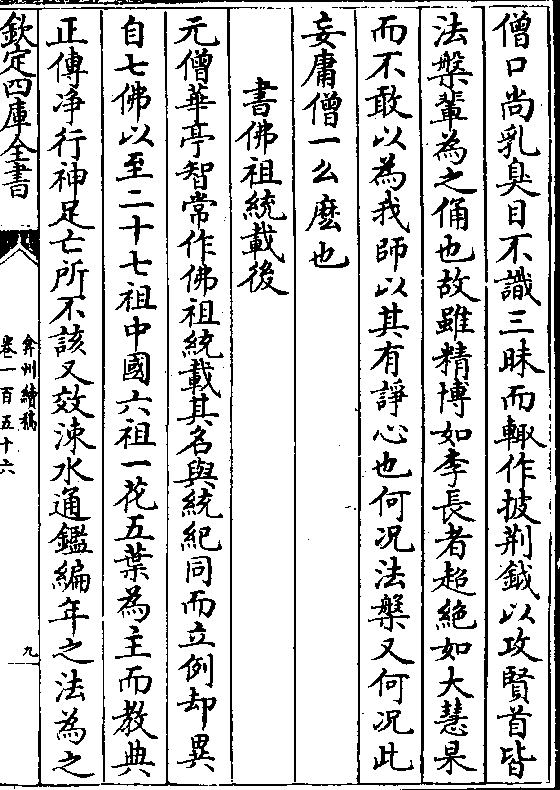 僧口尚乳臭目不識三昧而輙作披荆鉞以攻賢首皆
法槃輩為之俑也故雖精博如李長者超絶如大慧杲
而不敢以為我師以其有諍心也何况法槃又何况此
妄庸僧一么麽也
書佛祖統載後
元僧華亭智常作佛祖統載其名與統紀同而立例却異
自七佛以至二十七祖中國六祖一花五葉為主而教典
正傳净行神足亡所不該又效涑水通鑑編年之法為之
欽定四庫全書
弇州續稿
卷一百五十六
九